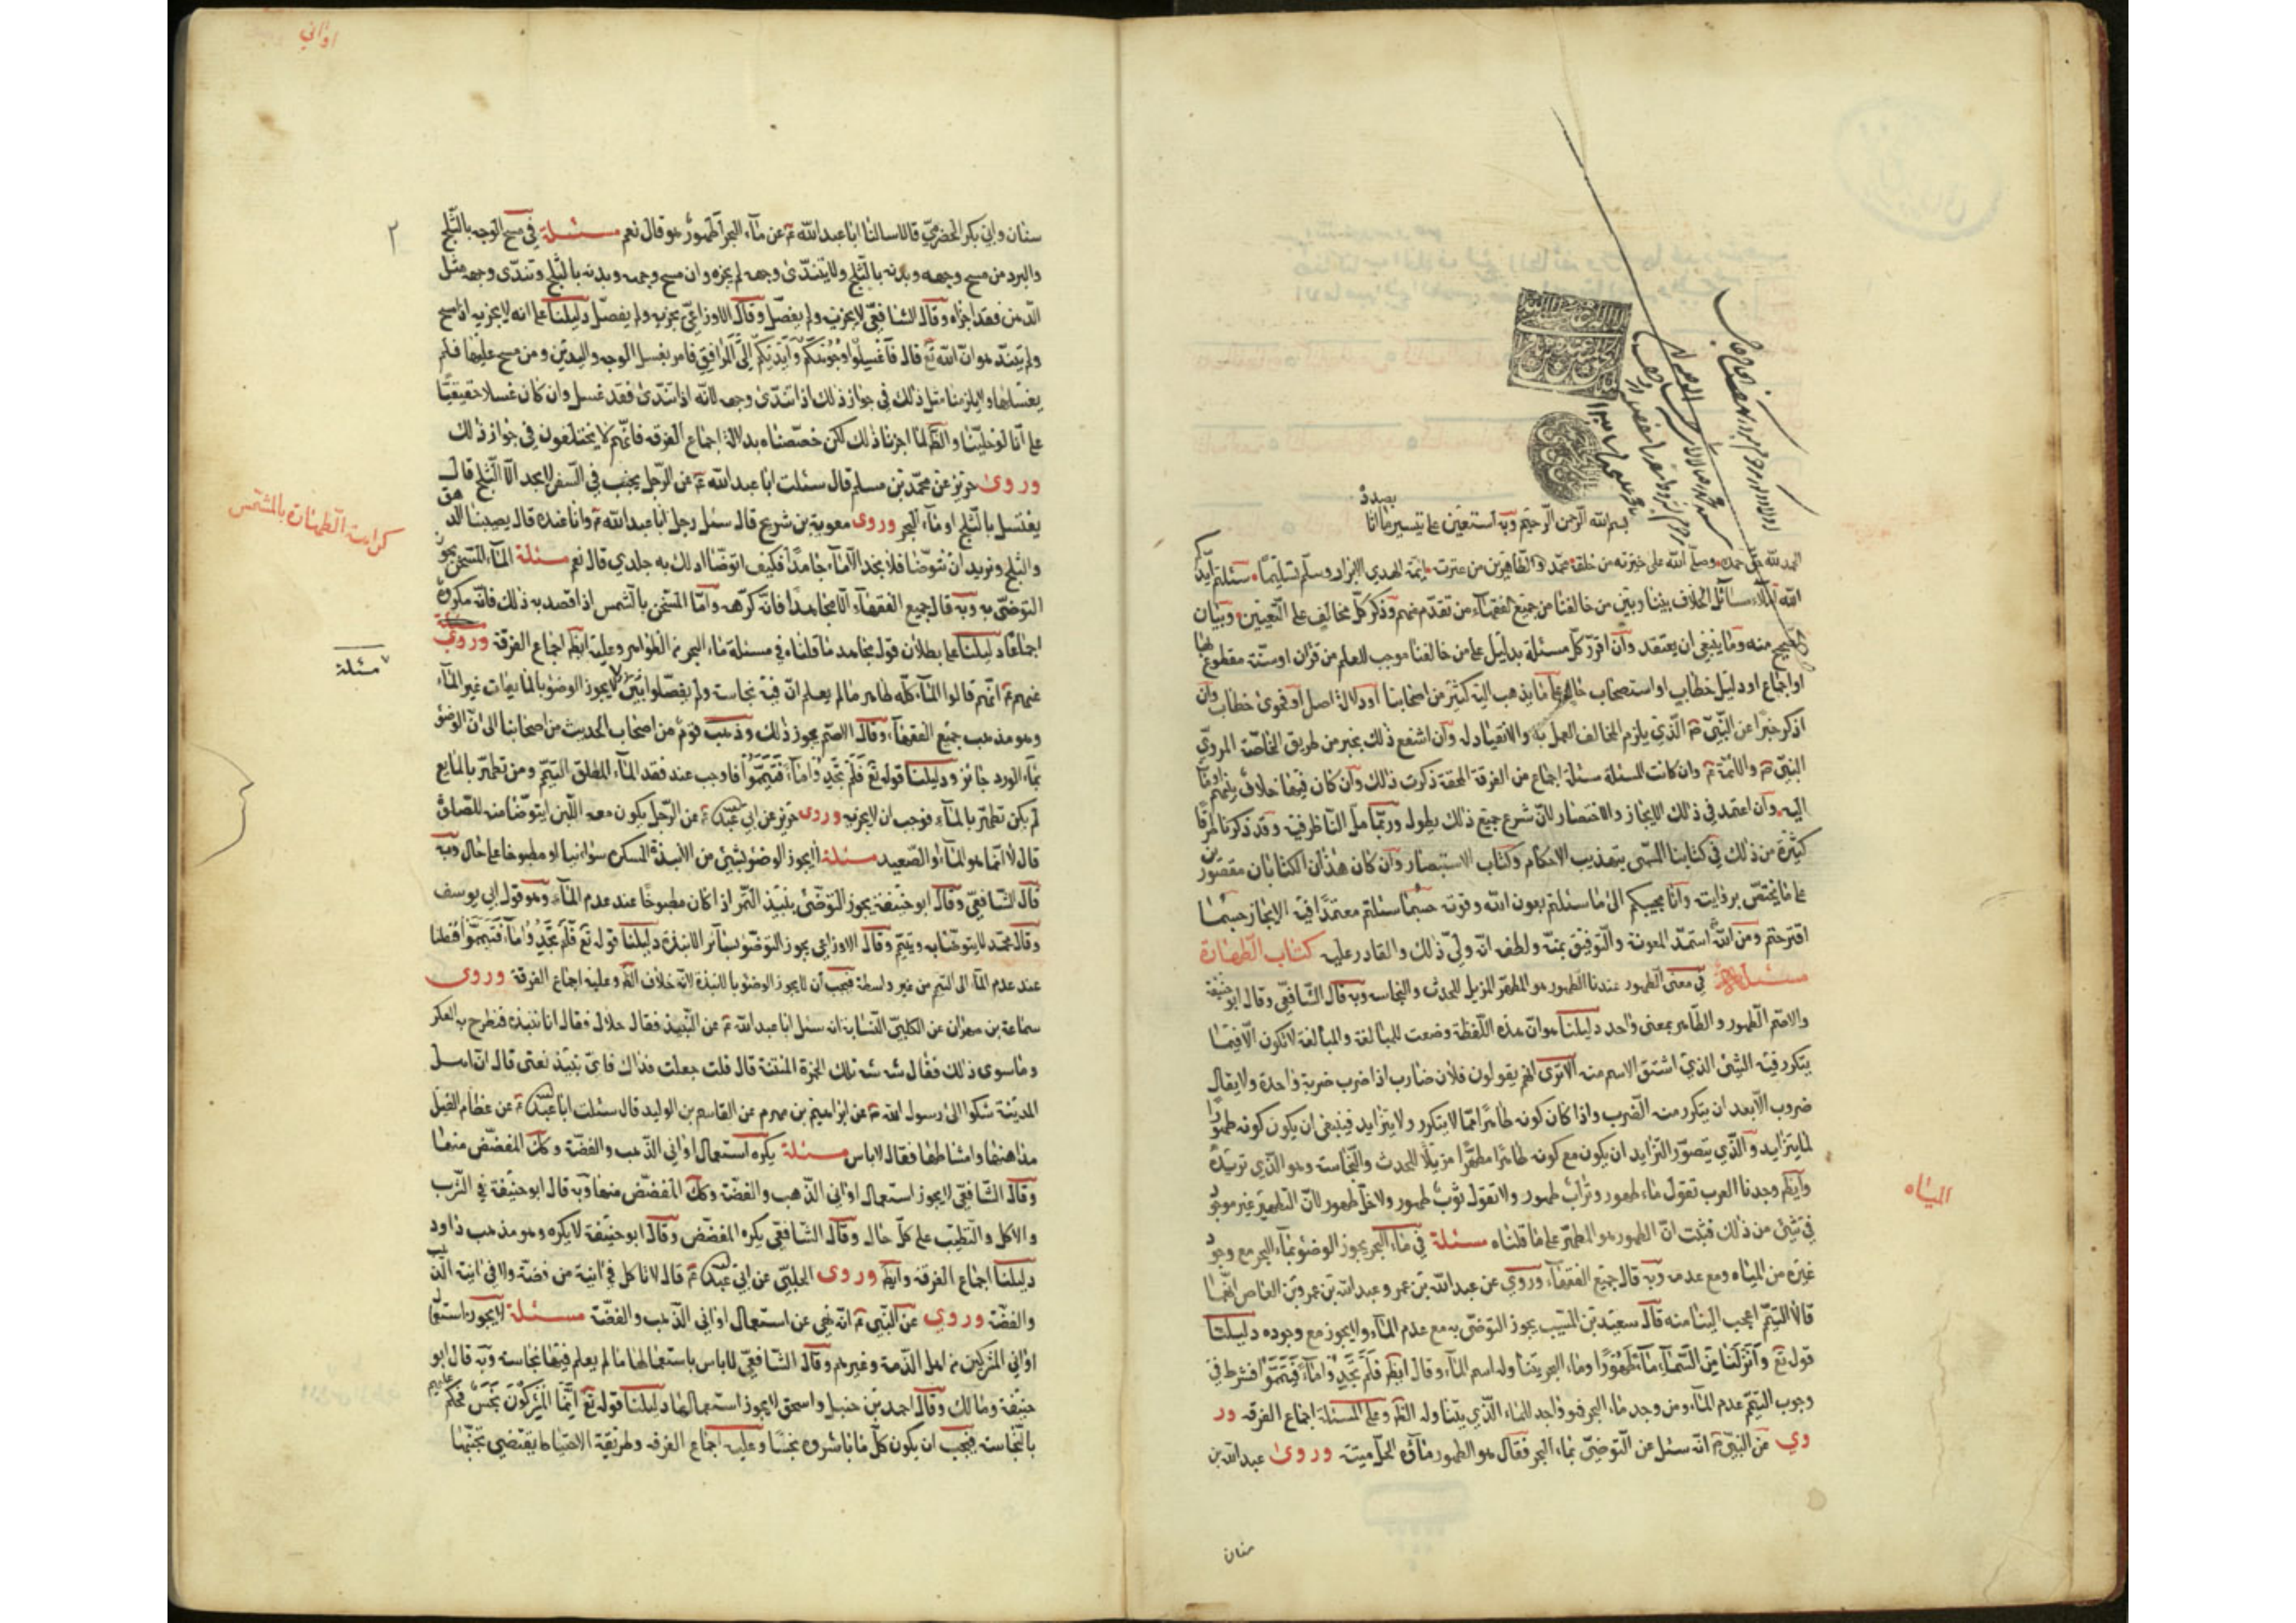 بسم الله الرحمن الرحيم وبه استعين على تيسير ما انا
بصدده
الحمد لله حق حمده وصلى الله على خيرته من خلقه محمد واله الطاهرين من عترته ائمة الهدى الابرار وسلم تسليما سئلتم ايدكم
الله املاء مسائل الخلاف بيننا وبين من خالفنا من جميع الفقهاء من تقدم منهم وذكر كل مخالف على التعيين وبيان
الصحيح منه وما ينبغى ان يعتقد وان اقرن كل مسئلة بدليل على من خالفنا موجب للعلم من قران او سنة مقطوع بها
او اجماع او دليل خطاب او استصحاب حال على ما يذهب اليه كثير من اصحابنا او دلالة اصل او فحوى خطاب وان
اذكر خبرا عن النبى الذى يلزم المخالف العمل به والانقياد له وان اشفع ذلك بخبر من طريق الخاصة المروى
النبى والائمة وان كانت المسئلة مسئلة اجماع من الفرقة المحقة ذكرت ذلك وان كان فيها خلاف بينهم اومأت
اليه وان اعتمد فى ذلك الايجاز والاختصار لان شرع جميع ذلك يطول وربما مل الناظر فيه وقد ذكرنا طرفا
كثيرة من ذلك فى كتابنا المسمى بتهذيب الاحكام وكتاب الاستبصار وان كان هذان الكتابان مقصورين
على ما يختص بروايته وانا مجيبكم الى ما سئلتم بعون الله وقوته حسبما سئلتم معتمدا فيه الايجاز حسبما
اقترحتم ومن الله استمد المعونة والتوفيق بمنه ولطفه انه ولى ذلك والقادر عليه كتاب الطهارة
مسئلة فى معنى الطهور عندنا الطهور هو المطهر المزيل للحدث والنجاسه وبه قال الشافعى وقال ابو حنيفة
والاصم الطهور والطاهر بمعنى واحد دليلنا هو ان هذه اللفظة وضعت للمبالغة والمبالغة لا تكون الا فيما
يتكرر فيه الشئ الذى اشتق الاسم منه الا ترى انهم يقولون فلان ضارب اذا ضرب ضربة واحدة ولا يقال
ضروب الا بعد ان يتكرر منه الضرب واذا كان كونه طاهرا مما لا يتكرر ولا يتزايد فينبغى ان يكون كونه طهورا
لما يتزايد والذى يتصور التزايد ان يكون مع كونه طاهرا مطهرا مزيلا للحدث والنجاسة وهو الذى نريده
وايضا وجدنا العرب تقول ماء طهور وتراب طهور ولا تقول ثوب طهور ولا خل طهور لان التطهير غير موجود
فى شئ من ذلك فثبت ان الطهور هو المطهر على ما قلناه مسئلة فى ماء البحر يجوز الوضوء بماء البحر مع وجود
غيره من المياه ومع عدمه وبه قال جميع الفقهاء وروى عن عبد الله بن عمر وعبد الله بن عمرو بن العاص انهما
قالا التيمم اعجب الينا منه قال سعيد بن المسيب يجوز التوضى به مع عدم الماء ولا يجوز مع وجوده دليلنا
قوله تع وانزلنا من السماء ماء طهورا وماء البحر يتناوله اسم الماء وقال ايضا فلم تجدوا ماء فتيمموا فشرط فى
وجوب التيمم عدم الماء ومن وجد ماء البحر فهو واجد للماء الذى يتناوله الظاهر وعلى المسئلة اجماع الفرقه ور
وى عن النبى انه سئل عن التوضى بماء البحر فقال هو الطهور ماؤه الحل ميتته وروى عبد الله بن
المياه
سنان
اوانى
٢
سنان وابى بكر الحضرمى قالا سالنا ابا عبد الله ع عن ماء البحر اطهور هو قال نعم مسئلة فى مسح الوجه بالثلج
والبرد من مسح وجهه وبدنه بالثلج ولا يتندى وجهه لم يجزه وان مسح وجهه وبدنه بالثلج وتندى وجهه مثل
الدهن فقد اجزاه وقال الشافعى لا يجزيه ولم يفصل وقال الاوزاعى يجزيه ولم يفصل دليلنا على انه لا يجزيه اذا مسح
ولم يتند هو ان الله تع قال فاغسلوا وجوهكم وايديكم الى المرافق فامر بغسل الوجه واليدين ومن مسح عليهما فلم
يغسلهما ولا يلزمنا مثل ذلك فى جواز ذلك اذا تندى وجهه لانه اذا تندى فقد غسل وان كان غسلا حقيقيا
على انا لو خلينا والظاهر لما اجزنا ذلك لكن خصصناه بدلالة اجماع الفرقه فانهم لا يختلفون فى جواز ذلك
وروى حريز عن محمد بن مسلم قال سئلت ابا عبد الله ع عن الرجل يجنب فى السفر لا يجد الا الثلج قال
يغتسل بالثلج او ماء البحر وروى معوية بن شريح قال سئل رجل ابا عبد الله ع وانا عنده قال يصيبنا الدمق
والثلج ونريد ان نتوضا فلا نجد الا ماء جامدا فكيف اتوضأ ادلك به جلدى قال نعم مسئلة الماء المسخن يجوز
التوضى به وبه قال جميع الفقهاء الا مجاهدا فانه كرهه واما المسخن بالشمس اذا قصد به ذلك فانه مكروه
اجماعا دليلنا على بطلان قول مجاهد ما قلناه فى مسئلة ماء البحر من الظواهر وعليه ايضا اجماع الفرقة وروى
عنهم ع انهم قالوا الماء كله طاهر ما لم يعلم ان فيه نجاسة ولم يفصلوا لا يجوز الوضوء بالمايعات غير الماء
وهو مذهب جميع الفقهاء وقال الاصم يجوز ذلك وذهب قوم من اصحاب الحديث من اصحابنا الى ان الوضوء
بماء الورد جائز ودليلنا قوله تع فلم تجدوا ماء فتيمموا فاوجب عند فقد الماء المطلق التيمم ومن تطهر بالمايع
لم يكن تطهر بالماء فوجب ان لا يجزيه وروى حريز عن ابى عبد الله ع عن الرجل يكون معه اللبن ايتوضا منه للصلوة
قال لا انما هو الماء او الصعيد مسئلة لا يجوز الوضوء بشئ من الانبذة المسكره سواء نيا او مطبوخا على حال وبه
قال الشافعى وقال ابو حنيفة يجوز التوضى بنبيذ التمر اذا كان مطبوخا عند عدم الماء وهو قول ابى يوسف
وقال محمد لا يتوضأ به ويتيمم وقال الاوزاعى يجوز التوضؤ بسائر الانبذة دليلنا قوله تع فلم تجدوا ماء فتيمموا فنقلنا
عند عدم الماء الى التيمم من غير واسطة فيجب ان لا يجوز الوضوء بالانبذة لانه خلاف الظاهر وعليه اجماع الفرقة وروى
سماعة بن مهران عن الكلبى النسابة انه سئل ابا عبد الله ع عن النبيذ فقال حلال فقال انا ننبذه فنطرح به العكر
وما سوى ذلك فقال شه شه تلك الخمرة المنتنة قال قلت جعلت فداك فاى نبيذ تعنى قال ان اهل
المدينة شكوا الى رسول الله عن ابراهيم بن مهزم عن القاسم بن الوليد قال سئلت ابا عبد الله ع عن عظام الفيل
مداهنها وامشاطها فقال لا باس مسئلة يكره استعمال اوانى الذهب والفضة وكك المفضض منها
وقال الشافعى لا يجوز استعمال اوانى الذهب والفضة وكك المفضض منها وبه قال ابو حنيفة فى الشرب
والاكل والتطيب على كل حال وقال الشافعى يكره المفضض وقال ابو حنيفة لا يكره وهو مذهب داود
دليلنا اجماع الفرقة وايضا وروى الحلبى عن ابى عبد الله ع قال لا تاكل فى انية من فضة ولا فى انية الذهب
والفضة وروى عن النبى انه نهى عن استعمال اوانى الذهب والفضة مسئلة لا يجوز استعمال
اوانى المشركين من اهل الذمة وغيرهم وقال الشافعى لا باس باستعمالها ما لم يعلم فيها نجاسة وبه قال ابو
حنيفة ومالك وقال احمد بن حنبل واسحق لا يجوز استعمالها دليلنا قوله تع انما المشركون نجس فحكم عليهم
بالنجاسة فيجب ان يكون كل ما باشروه نجسا وعليه اجماع الفرقه وطريقة الاحتياط يقتضى تجنبها
كراهت الطهارة بالمشمس
مسئلة